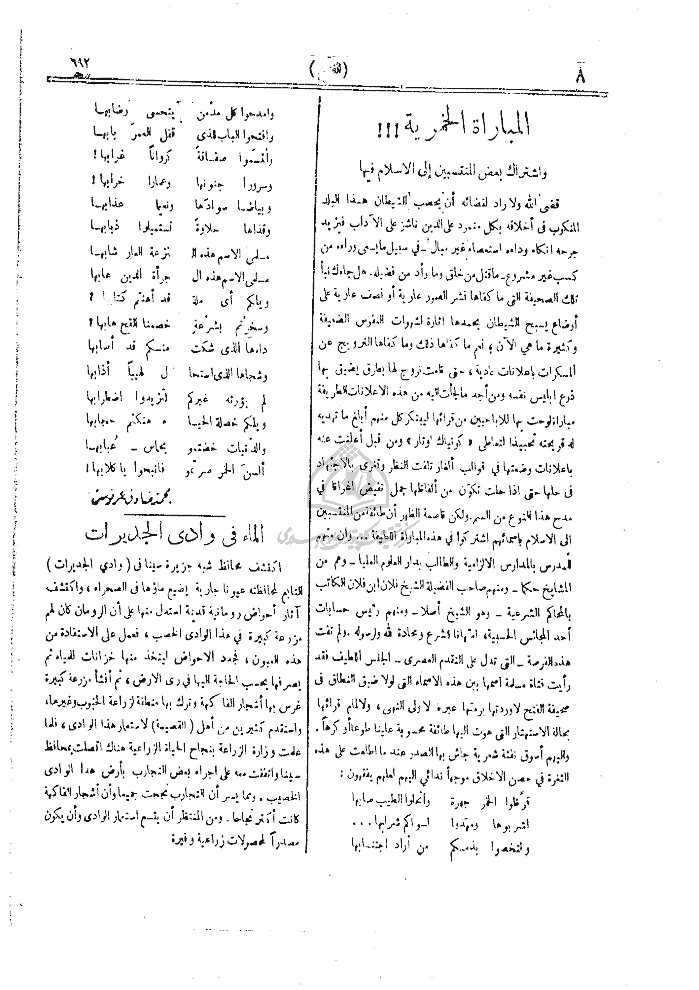 ٨
(الفتح)
٦٩٢
المباراة الخمرية !!!
واشتراك بعض المنتسبين إلى الاسلام فيها
قضى الله ولا راد لقضائه أن يحصب الشيطان هذا البلد
المنكوب فى أخلاقه بكل متمرد على الدين ناشز على الآداب فيزيد
جرحه انكاء وداءه استعصاء غير مبال فى سبيل ما يسمى وراءه من
كسب غير مشروع ـ ما قتل من خلق وما وأد من فضيلة. هل جاءك نبأ
تلك الصحيفة التى ما كفاها نشر الصور عارية أو نصف عارية على
أوضاع يسبح الشيطان بحمدها اثارة لشهوات النفوس الضعيفة
وكثيرة ما هى الآن ؛ نعم ما كفاها ذلك وما كفاها الترويج عن
المسكرات باعلانات عادية ، حتى قامت تروج لها بطرق يضيق بها
ذرع ابليس نفسه ومن أجد ما لجأت اليه من هذه الاعلانات الطريفة
مباراة لوحت بها للاباحيين من قرائها ليبتكر كل منهم أبلغ ما تهديه
له قريحته تحبيذا لتعاطى « كونياك اوتار » ومن قبل أعلنت عنه
باعلانات وضعتها فى قوالب ألغاز تلفت النظر وتغرى بالاجتهاد
فى حلها حتى اذا حلت تكون من ألفاظها جمل تفيض اغراقا فى
مدح هذا النوع من السم. ولكن قاصمة الظهر أن طائفة من المنتسبين
الى الاسلام باسمائهم اشتركوا فى هذه المباراة اللطيفة ... وان منهم
المدرس بالمدارس الالزامية والطالب بدار العلوم العليا ـ وهم من
المشايخ حكما ـ ومنهم صاحب الفضيلة الشيخ فلان ابن فلان الكاتب
بالمحاكم الشرعية ـ وهو الشيخ أصلا ـ ومنهم رئيس حسابات
أحد المجالس الحسبية، امتهانا للشرع ومحادة لله ورسوله. ولم تفت
هذه الفرصة ـ التى تدل على التقدم العصرى ـ الجنس اللطيف فقد
رأيت فتاة مسلمة اسمها بين هذه الاسماء التى لولا ضيق النطاق فى
صحيفة الفتح لاوردتها برمتها عبرة لاولى النهى ، ولالمام قرائها
بحالة الاستهتار التى هوت اليها طائفة محسوبة علينا طوعا أو كرهاً.
واليهم أسوق نفثة شعرية جاش بها الصدر عند ما اطلعت على هذه
الثغرة فى حصن الاخلاق موجهاً ندائى اليهم لعلهم يفقهون :
قرظوا الخمر جهرة وانحلوا الطيب صابها
اشربوها ومهدوا لسواكم شرابها ...
وتخصوا بذمكم من أراد اجتنابها
وامدحوا كل مدمن يتحسى رضابها
وافتحوا الباب للذى قفل العمر بابها
وأقسموا صفاقة كرواناً غرابها !
وسرورا جنونها وعمارا خرابها !
وبياضا سوادها ونعيما عذابها
وقذاها حلاوة تستميلوا ذبابها
مسلمى الاسم هذه الـ نزعة العار شابها
مسلمى الاسم هذه الـ جرأة الدين عابها
ويلكم أى ملة قد أهنتم كتابها !
وسخرتم بشرعة خصمنا القح هابها !
داءها الذى شكت منكم قد أصابها
وشجاها الذى استحا ل لهيباً أذابها
لم يؤرثه غيركم لتزيدوا اضطرابها
ويلكم خصلة الحيا ء هتكتم حجابها
والدنيات خضتمو بحماس ـ عبابها ـ
ألسن الخمر صرتمو فانبحوا يا كلابها !
محمد صادق عرنوس
الماء فى وادى الجديرات
اكتشف محافظ شبه جزيرة سينا فى ( وادى الجديرات )
التابع لمحافظته عيونا جارية يضيع ماؤها فى الصحراء ، واكتشف
آثار أحواض رومانية قديمة استدل منها على أن الرومان كان لهم
مزرعة كبيرة فى هذا الوادى الخصب ، فعمل على الاستفادة من
هذه العيون ، فجدد الاحواض ليتخذ منها خزانات للمياه ثم
يصرفها بحسب الحاجة اليها فى رى الارض ، ثم أنشأ مزرعة كبيرة
غرس بها أشجار الفاكهة وترك بها منطقة لزراعة الحبوب وغيرها،
واستقدم كثيرين من أهل ( القصيمة ) لاستعمار هذا الوادى ، فلما
علمت وزارة الزراعة بنجاح الحياة الزراعية هناك اتصلت بمحافظ
سينا واتفقت معه على اجراء بعض التجارب بأرض هذا الوادى
الخصيب . ومما يسر أن التجارب نجحت جميعا وأن أشجار الفاكهة
كانت أكثر نجاحا . ومن المنتظر أن يقسم استثمار الوادى وأن يكون
مصدراً لمحصولات زراعية وفيرة